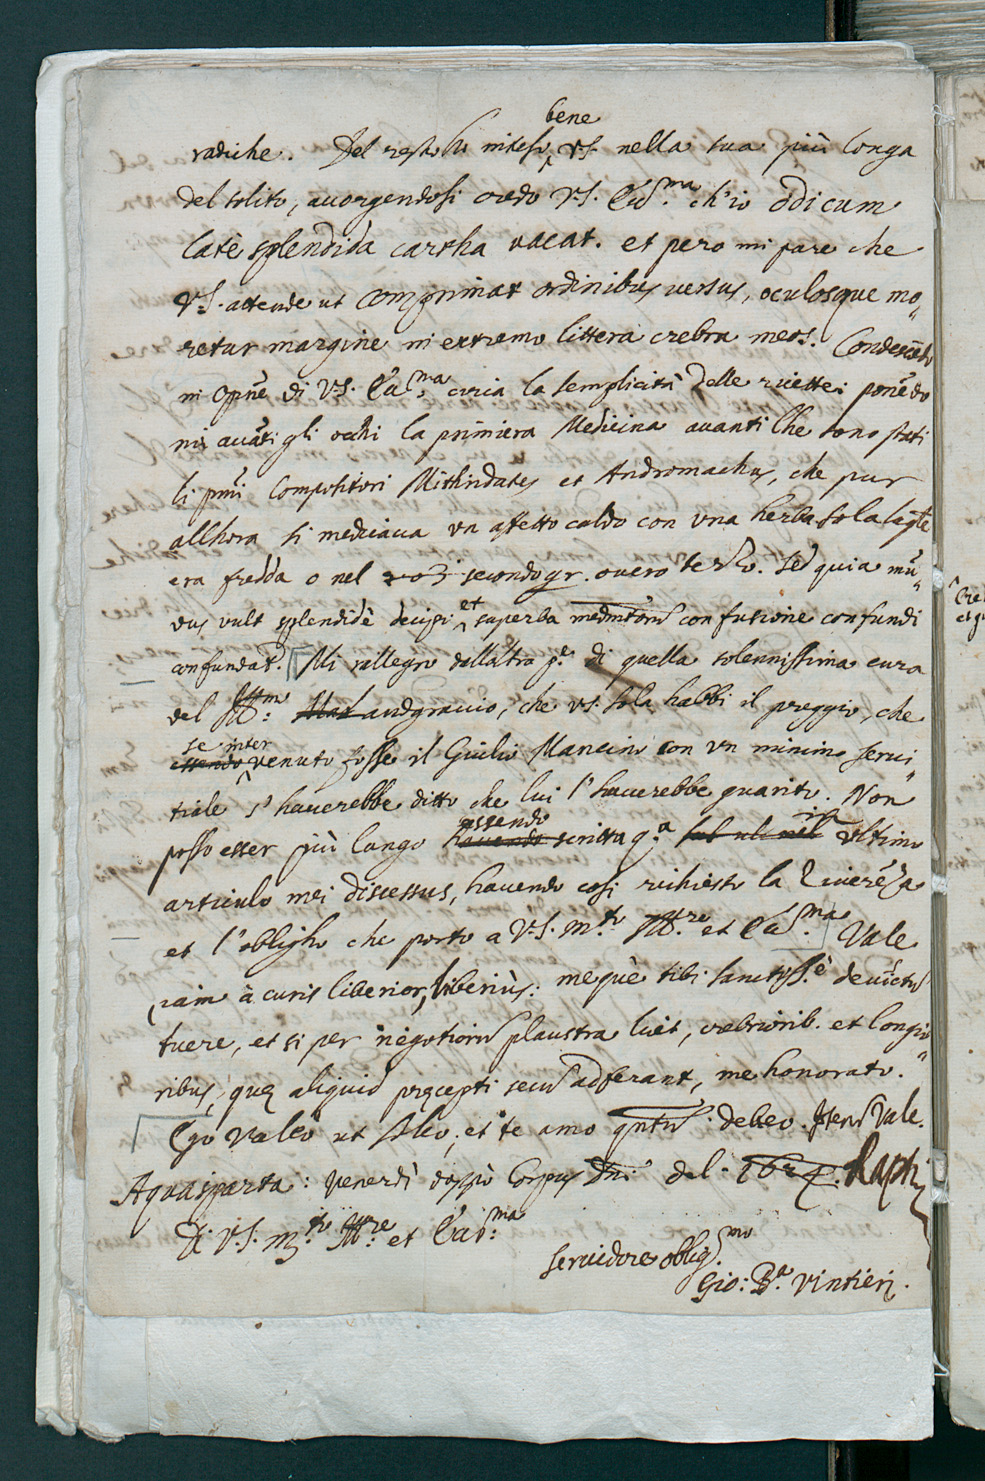 bene
radiche. Del resto ho inteso V.S. nella sua più longa
del solito, accorgendosi credo V.S. Ecc.ma ch'io odi cum
latè splendida cartha vacat. et però mi pare che
V.S. attende ut comprimat ordinibus versus, oculosque mo„
retur margine in extremo littera crebra meos. Condescedo
in opne di V.S. Ecc.ma circa la semplicità delle ricette: ponedo
mi avati gli occhi la primiera Medicina avanti che sono stati
li pmi Compositori Mithridates et Andromachus, che pur
allhora si medicava un affetto caldo con una herba sola la qle
era fredda o nel 2 o 3 secondo gr. overo terzo. Sed quia mu„
dus vult splendidè decipi et superba confusione confundi
confundat. Mi rallegro dall'altra pte. di quella solennissima cura
del Ill.mo Landgravio, che V.S. sola habbi il preggio, che
se inter
essendo venuto fosse il Giulio Mancino con un minimo servi„
tiale s'haverebbe ditto che lui l'haverebbe guarito. Non
essendo in
posso esser più longo havendo scritta q.a ultimo
articulo mei discessus, havendo così richiesto la Riverèza
et l'obligho che porto a V.S. m.to Ill.re et Ecc.ma Vale
iam à curis liberior, liberiùs: mequè tibi sanctiss.è devictu
tuere, et si per negotioru plaustra licet, crebriorib. et longio„
ribus, quę aliquid pręcepti secu adferant, me honorato.
Ego valeo ut soleo, et te amo qntu debeo. Iteru Vale.
Aquasparta: Venerdì doppò Corpus Dni del 1624. Raptim
Di V.S. m.to Ill.re et Ecc.ma
Servidore oblig.mo
Gio: B.a Vintieri.